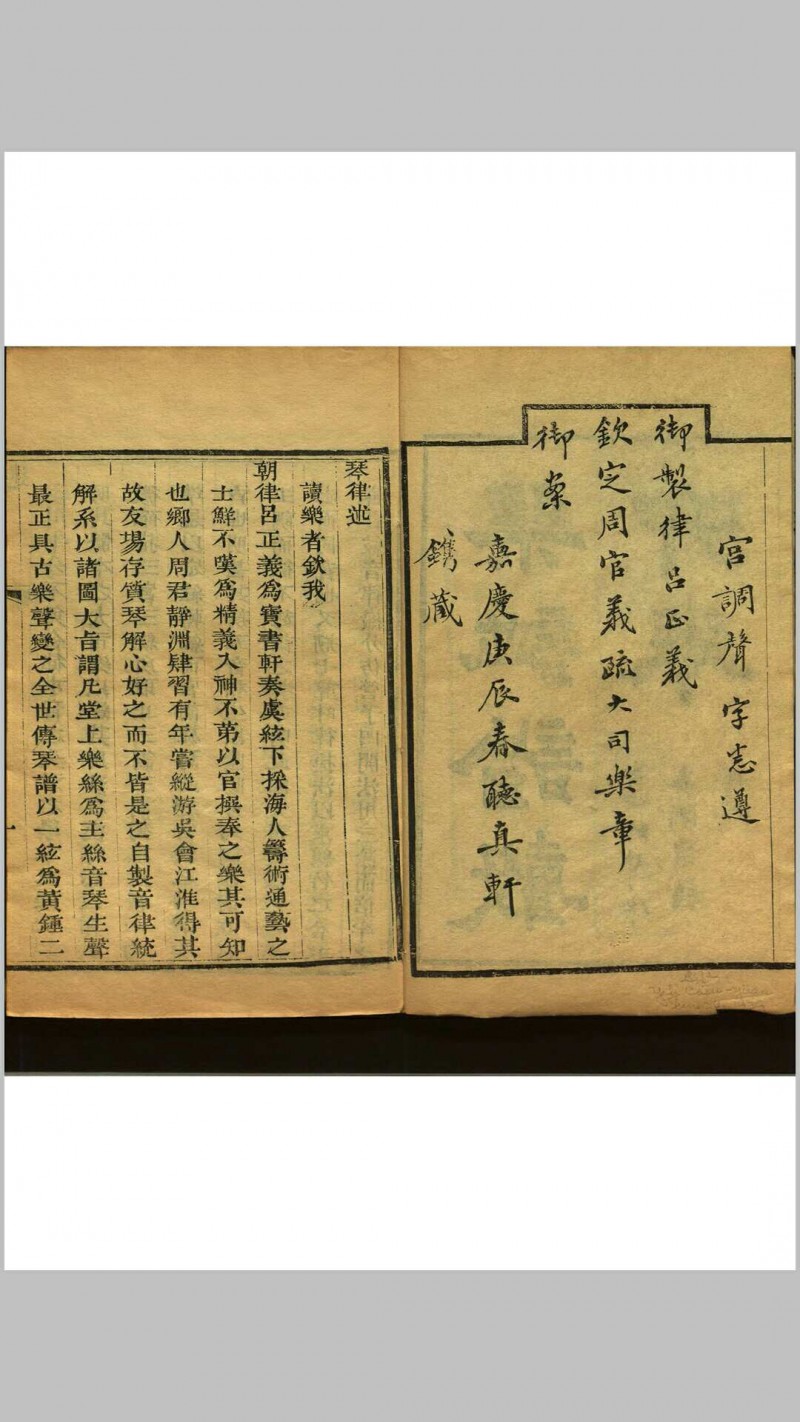 宮調聲字悉遵
御製律呂正義
欽定周官義疏大司樂章
御案
嘉慶庚辰春聽真軒
鐫藏
琴律述
讀樂者欽我
朝律呂正義為寶書軒奏虞絃下採海人籌術通藝之
士鮮不嘆為精義入神不苐以官撰奉之樂其可知
也鄉人周君靜淵肄習有年嘗縱游吳會江淮得其
故友場存質琴解心好之而不皆是之自製音律統
解系以諸圖大旨謂凡堂上樂絲為主絲音琴生聲
最正具古樂聲變之全世傳琴譜以一絃為黃鍾二
一